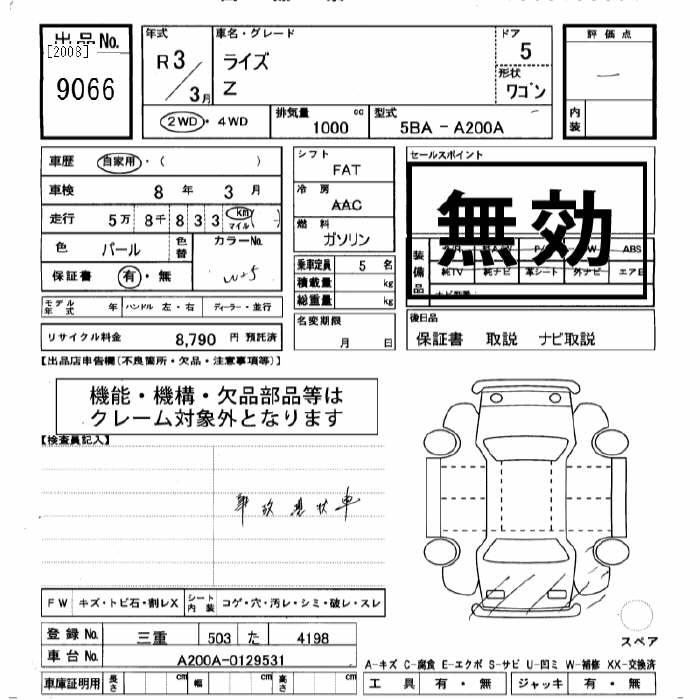 出品No.
[2008]
9066
年式
R3/3月
車名・グレード
ライズ
Z
ドア
5
形状
ワゴン
評価点
一
内装
2WD・4WD
排気量
1000 cc
型式
5BA - A200A
車歴 自家用・( )
車検 8年 3月
走行 5万 8千 8 3 3 km マイル ( )
色 パール
色替
カラーNo.
W25
保証書 有・無
モデル年式 年 ハンドル 左・右 ディーラー・並行
リサイクル料金 8,790 円 預託済
シフト
FAT
冷房
AAC
燃料
ガソリン
乗車定員 5 名
積載量 kg
総重量 kg
名変期限
月 日
セールスポイント
無効
装備品
ABS
純TV 純ナビ 革シート 外ナビ エアB
後日品
保証書 取説 ナビ取説
【出品店申告欄(不良箇所・欠品・注意事項等)】
機能・機構・欠品部品等は
クレーム対象外となります
【検査員記入】
現状車
FW キズ・トビ石・割レX
シート内装 コゲ・穴・汚レ・シミ・破レ・スレ
登録No. 三重 503 た 4198
車台No. A200A-0129531
車庫証明用 長さ cm 幅 cm 高さ cm
スペア
A-キズ C-腐食 E-エクボ S-サビ U-凹ミ W-補修 XX-交換済
工具 有・無 ジャッキ 有・無